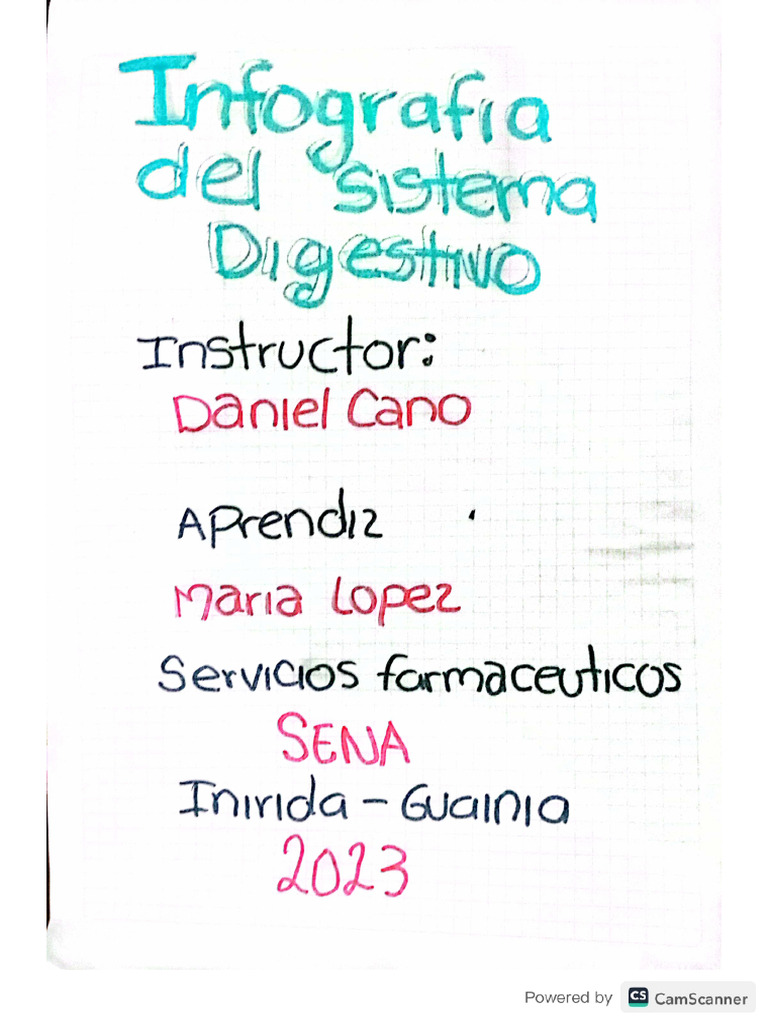 Infografia
del sistema
Digestivo
Instructor:
Daniel Cano
Aprendiz
Maria Lopez
Servicios farmaceuticos
SENA
Inirida - Guainia
2023
Powered by CS CamScanner